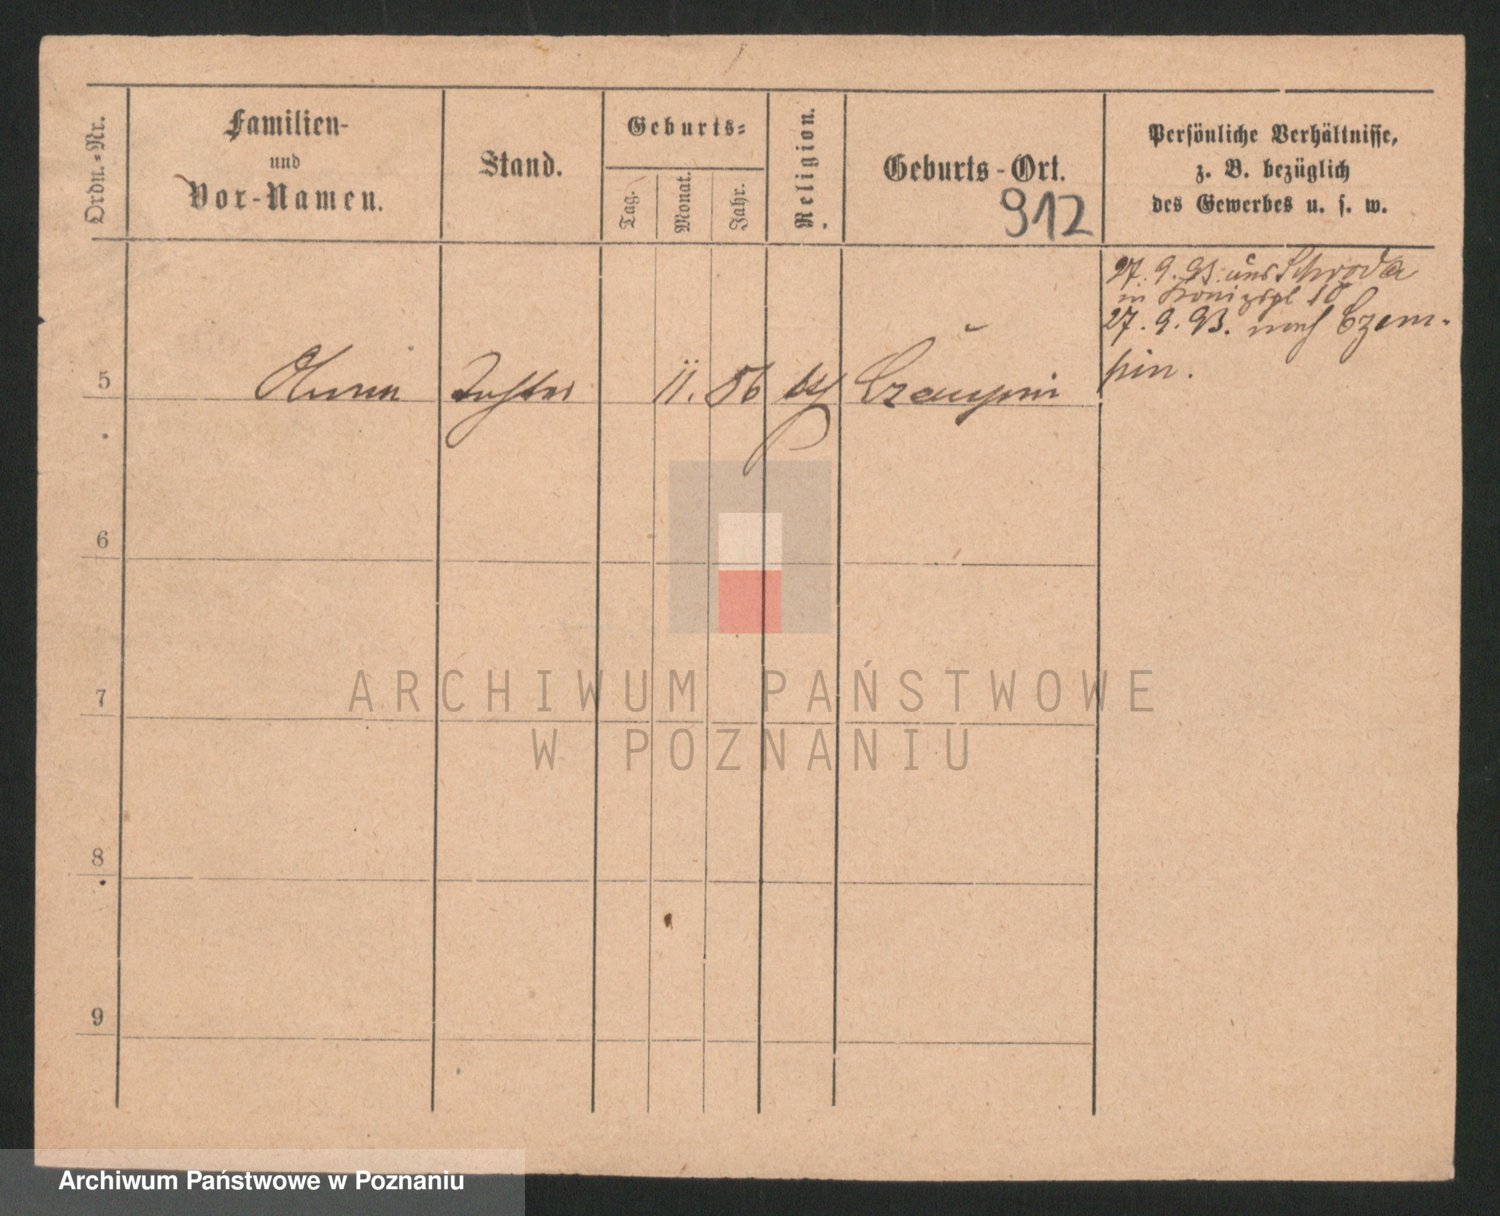 Ordn.-Nr.
Familien-
und
Vor-Namen.
Stand.
Geburts-
Tag.
Monat.
Jahr.
Religion.
Geburts-Ort.
912
Persönliche Verhältnisse,
z. B. bezüglich
des Gewerbes u. s. w.
27. 9. 93. aus Schroda
in Königspl 10
27. 9. 93. nach Czem-
pin.
5 Tochter 11. 56
6
7
8
9
ARCHIWUM PAŃSTWOWE
W POZNANIU
Archiwum Państwowe w Poznaniu